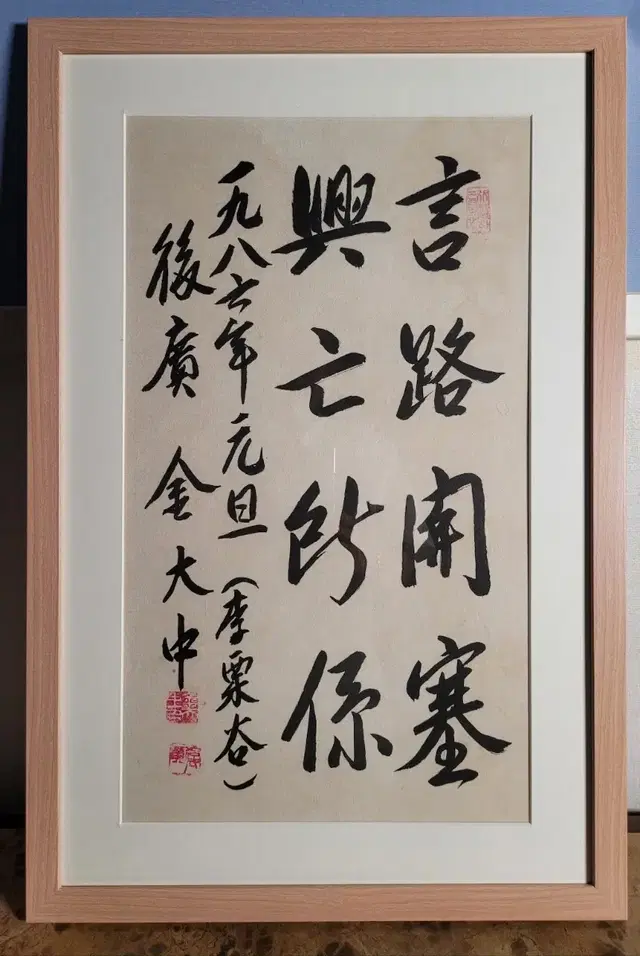 言路開塞
興亡所係
一九八六年元旦(李栗谷)
後廣 金大中